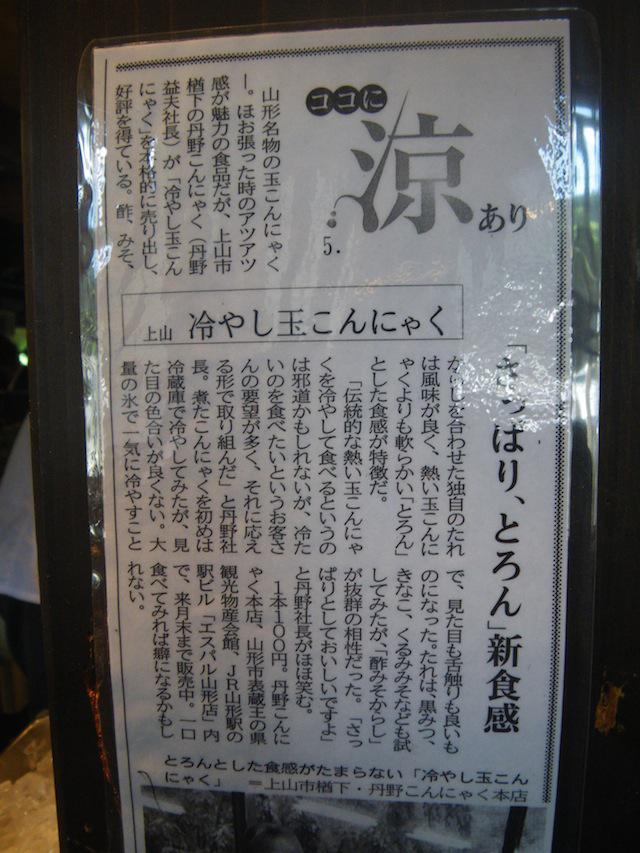 ココに
涼
あり
5.
山形名物の玉こんにゃく
ー。ほお張った時のアツアツ
感が魅力の食品だが、上山市
楢下の丹野こんにゃく（丹野
益夫社長）が「冷やし玉こん
にゃく」を本格的に売り出し、
好評を得ている。酢、みそ、
上山 冷やし玉こんにゃく
「さっぱり、とろん」新食感
からしを合わせた独自のたれ
は風味が良く、熱い玉こんに
ゃくよりも軟らかい「とろん」
とした食感が特徴だ。
「伝統的な熱い玉こんにゃ
くを冷やして食べるというの
は邪道かもしれないが、冷た
いのを食べたいというお客さ
んの要望が多く、それに応え
る形で取り組んだ」と丹野社
長。煮たこんにゃくを初めは
冷蔵庫で冷やしてみたが、見
た目の色合いが良くない。大
量の氷で一気に冷やすこと
で、見た目も舌触りも良いも
のになった。たれは、黒みつ、
きなこ、くるみみそなども試
してみたが、「酢みそからし」
が抜群の相性だった。「さっ
ぱりとしておいしいですよ」
と丹野社長がほほ笑む。
1本100円。丹野こんに
ゃく本店、山形市表蔵王の県
観光物産会館、JR山形駅の
駅ビル「エスパル山形店」内
で、来月末まで販売中。一口
食べてみれば癖になるかもし
れない。
とろんとした食感がたまらない「冷やし玉こん
にゃく」＝上山市楢下・丹野こんにゃく本店